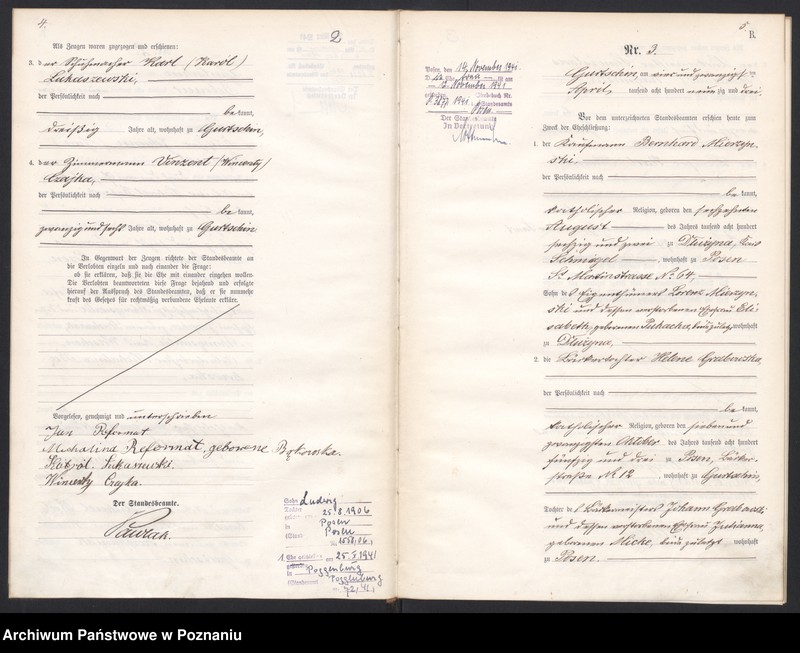 4.
2
Als Zeugen waren zugezogen und erschienen:
3. der Schuhmacher Karl (Karól)
Lukaszewski,
der Persönlichkeit nach
be kannt,
dreißig Jahre alt, wohnhaft zu Gurtschin,
4. der Zimmermann Vinzent (Wincenty)
Czajka,
der Persönlichkeit nach
be kannt,
zwanzig und sechs Jahre alt, wohnhaft zu Gurtschin
In Gegenwart der Zeugen richtete der Standesbeamte an
die Verlobten einzeln und nach einander die Frage:
ob sie erklären, daß sie die Ehe mit einander eingehen wollen.
Die Verlobten beantworteten diese Frage bejahend und erfolgte
hierauf der Ausspruch des Standesbeamten, daß er sie nunmehr
kraft des Gesetzes für rechtmäßig verbundene Eheleute erkläre.
Vorgelesen, genehmigt und unterschrieben
Jan Reformat
Michalina Reformat, geborene Bąkowska.
Wincenty Czajka.
Der Standesbeamte.
Sohn Ludwig
Tochter
25.8.1906
in Posen
Posen
1 Ehe
am 25.5.1941
in Poggenburg
Standesamt Poggenburg
72/41
5.
B.
Posen, den 14. November 1941
am 13. November 1941
Sterbebuch Nr.
1941 Standesamts
Der Standesbeamte
In Vertretung
Nr. 3.
Gurtschin, am vier und zwanzigsten
April, tausend acht hundert neunzig und drei.
Vor dem unterzeichneten Standesbeamten erschienen heute zum
Zweck der Eheschließung:
1. der Kaufmann Bernhard Mierzyn-
ski,
der Persönlichkeit nach
be kannt,
katholischer Religion, geboren den sechszehnten
August des Jahres tausend acht hundert
sechzig und zwei zu Dłużyna, Kreis
Schmiegel, wohnhaft zu Posen
St. Martinstrasse No. 64,
Sohn des Eigenthümers Lorenz Mierzyn-
ski und dessen verstorbenen Ehefrau Eli-
sabeth, geborenen Pukacka, beide zuletzt wohnhaft
zu Dłużyna,
2. die Bäckertochter Helene Grabowska,
der Persönlichkeit nach
be kannt,
katholischer Religion, geboren den sieben und
zwanzigsten Oktober des Jahres tausend acht hundert
fünfzig und drei zu Posen, Bäcker-
straße No 12, wohnhaft zu Gurtschin,
Tochter des Bäckermeisters Johann Grabowski
und dessen verstorbenen Ehefrau Julianna,
geborenen Micke, beide zuletzt wohnhaft
zu Posen.
Archiwum Państwowe w Poznaniu